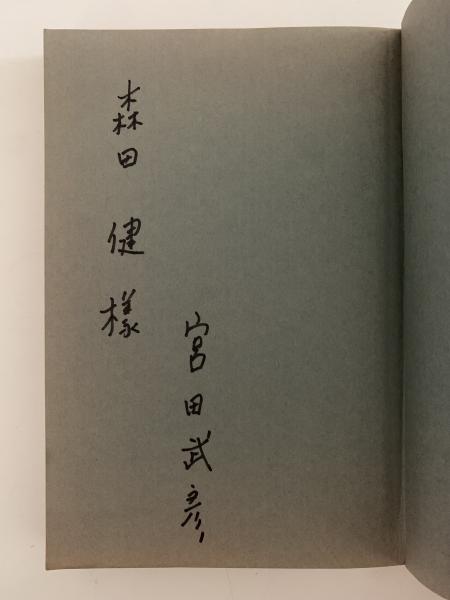 森田 健 様
宮田武彦